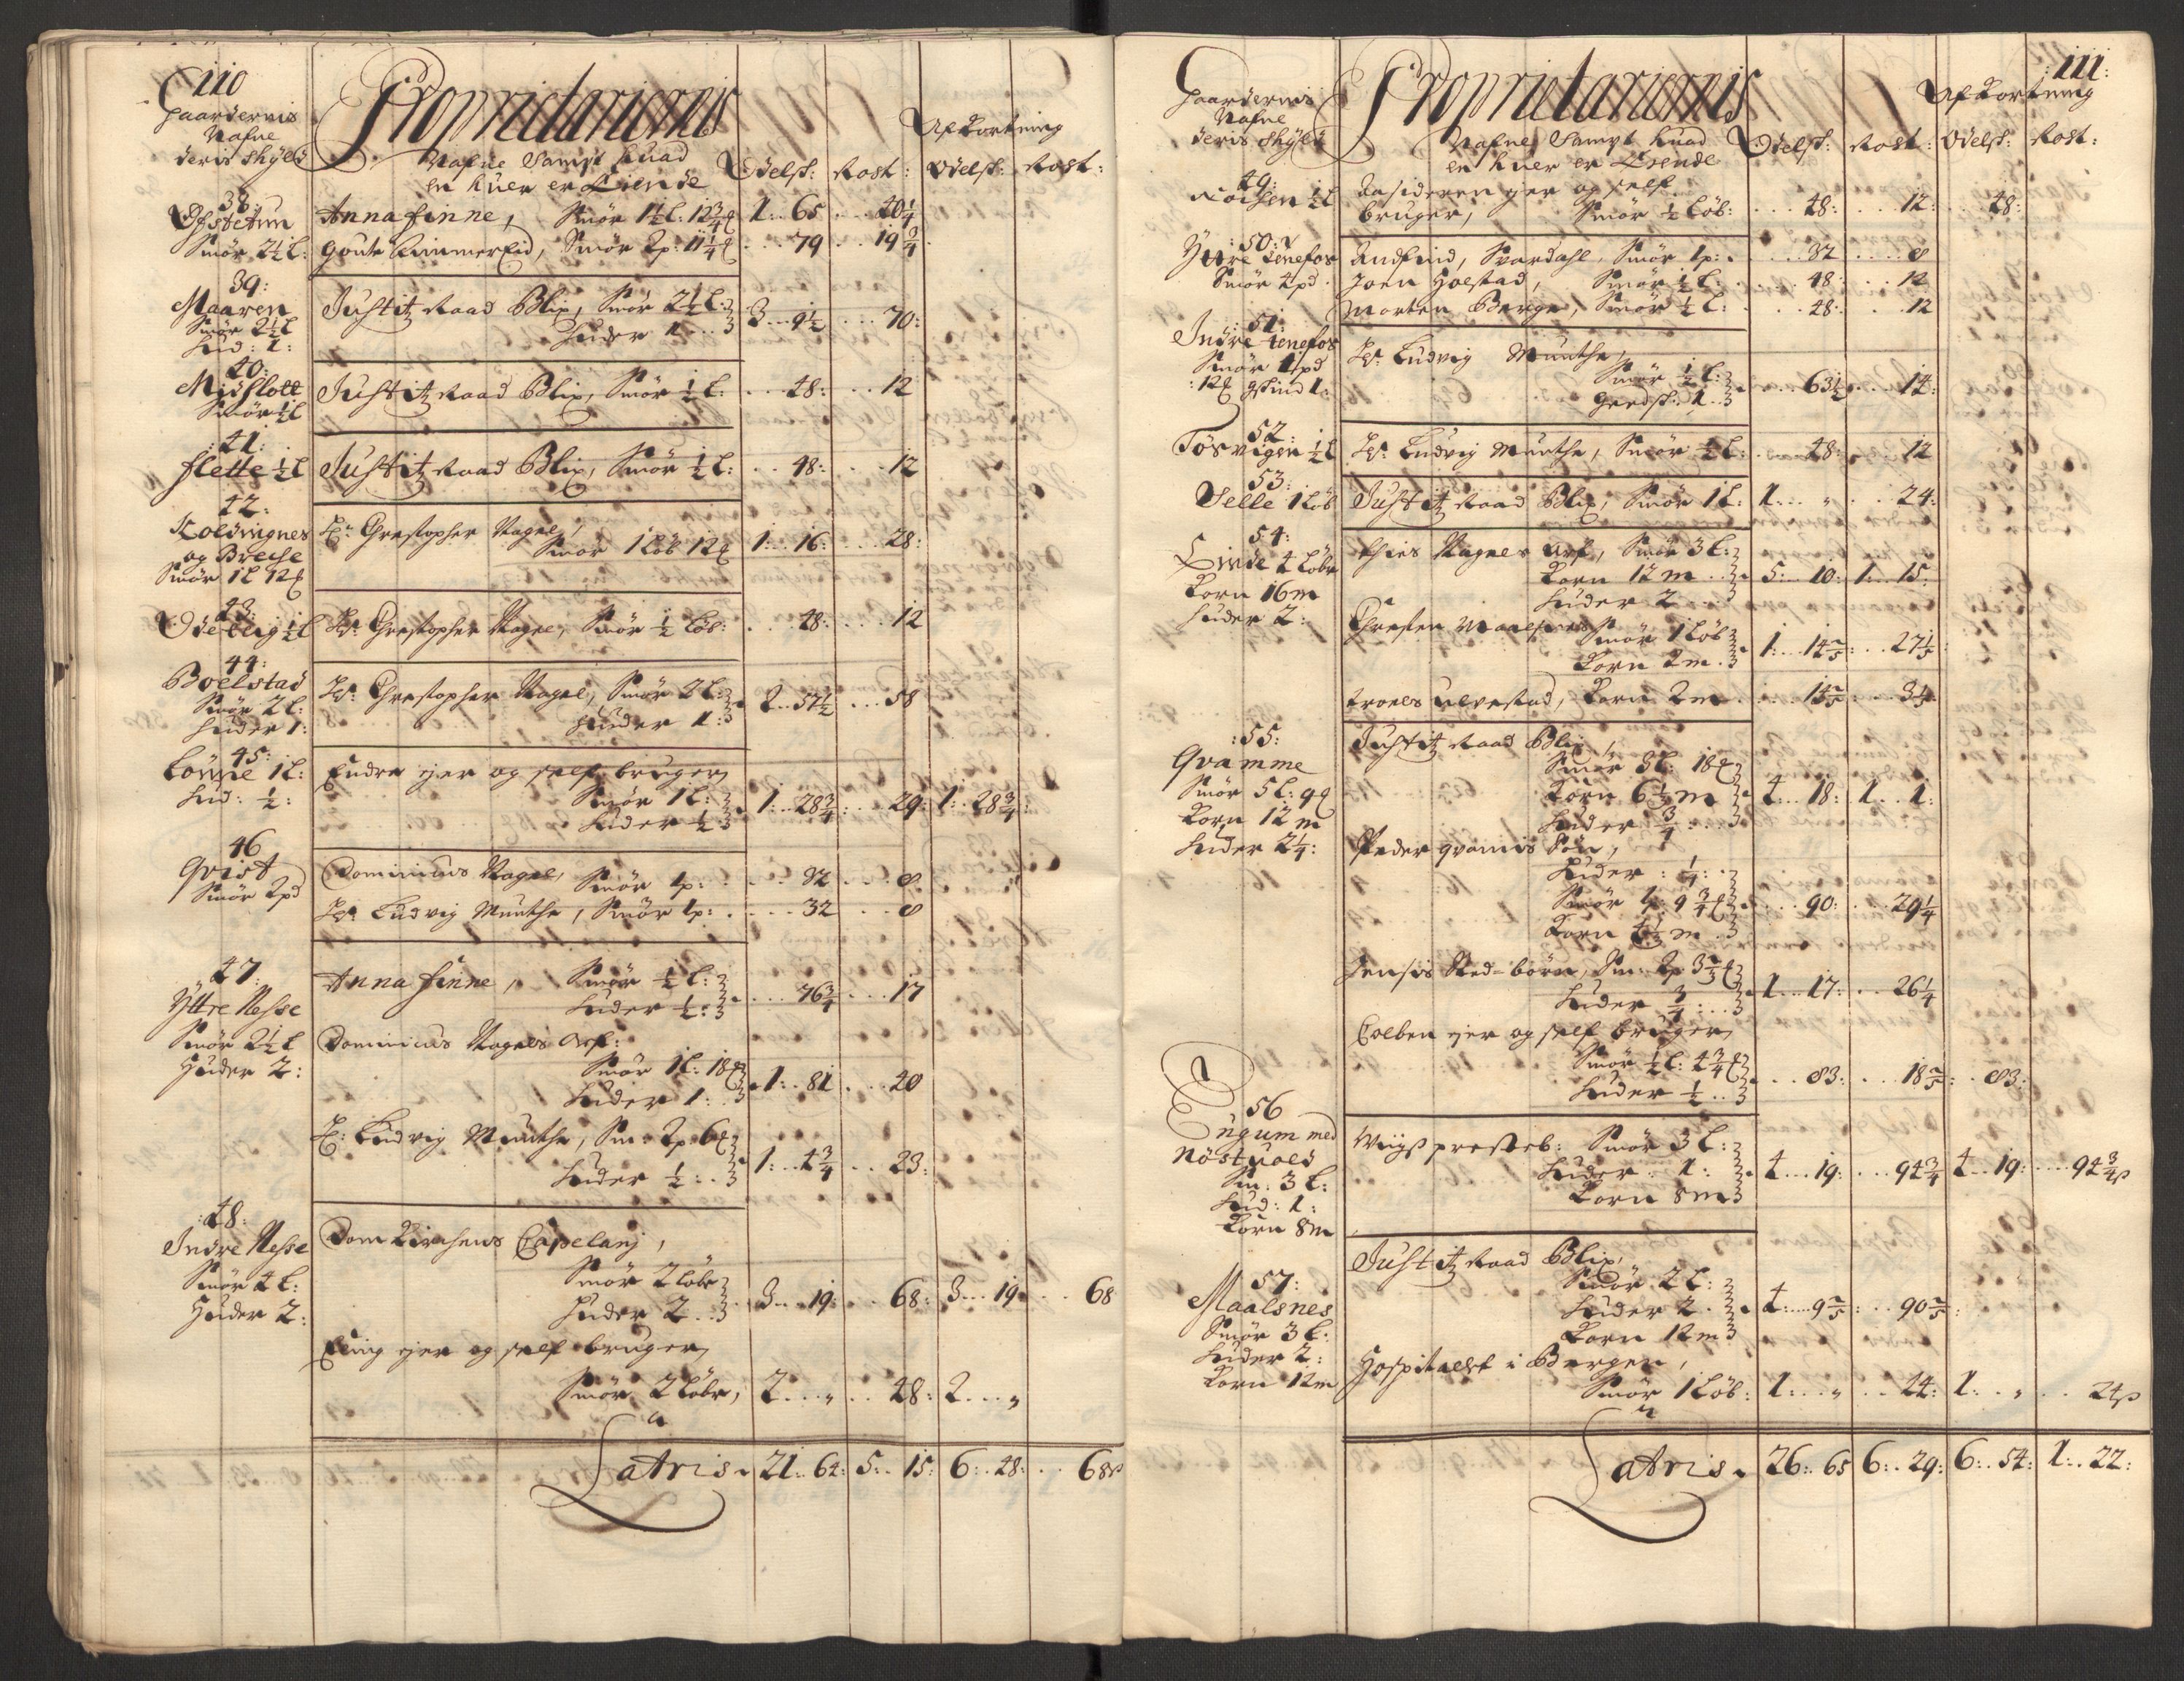 110
Gaardernis
Nafne
deris Skyld
Proprietariernis
Nafne Sampt huad
en huer er Eiende
Odelsk:
Rost:
Afkortning
Odelsk:
Rost:
38
Smör 2½ l:
Anna finne, Smör 1½ l: 12¾ 1: 65 ... 40¼
Smör 2p: 11¼ ... 79 ... 19¾
39:
Maaren
Smör 2½ l
Hud: 1:
Justitz Raad Blix, Smör 2½ l:
Huder 1 ... 3 .. 9½ ... 70:
40:
Midflott
Smör ½ l
Justitz Raad Blix, Smör ½ l: ... 48: ... 12
41:
flette ½ l
Justitz Raad Blix, Smör ½ l: .. 48: ... 12
42:
Holdvignes
og Breche
Smör 1 l 12
Hr: Chrestopher Nagel,
Smör 1 löb 12 1: .. 16: ... 28:
43:
½ l
Hr: Chrestopher Nagel, Smör ½ löb: . 48: ... 12
44:
Boelstad
Smör 2 l:
Huder 1:
Hr: Chrestopher Nagel, Smör 2 l:
Huder 1: 2 .. 57½ ... 58
45:
Lönne 1 l:
Hud: ½:
Endre ejer og self bruger
Smör 1 l:
Huder ½ 1: .. 28¾ ... 29: 1: 28¾
46
Qvist
Smör 2pd
Dominicus Nagel, Smör 1p: ... 32 ... 8
Hr: Ludvig Munthe, Smör 1p: ... 32 ... 8
47:
Yttre Nesse
Smör 2½ l
Huder 2:
Anna finne, Smör ½ l:
Huder ½: ... 76¾ ... 17
Dominicus Nagels Arf:
Smör 1 l: 18
Huder 1: 1: .. 81 ... 40
Hr: Ludvig Munthe, Sm: 2p 6
Huder ½: 1: .. 4¾ ... 23:
:48:
Indre Nesse
Smör 4 l:
Huder 2:
Domkirchens Capelanj,
Smör 2 löbr
Huder 2 .. 3 ... 19: .. 68: 3 ... 19. .. 68
Elling ejer og self bruger
Smör 2 löbr, 2 ... „ .. 48: 2 ... „
Latris. 21: 62: 5: 15: 6: .28: .. 68
:111:
Gaardernis
Nafne
deris Skyld
Proprietariernis
Nafne Sampt huad
en huer er Eiende
Odelsk:
Rost:
Afkortning
Odelsk:
Rost:
49:
½ l
ejer og self
bruger, Smör ½ löb: ... 48: ... 12: ... 48:
:50:
Yttre tenefos
Smör 4pd
Andfind, Svardahl, Smör 1p: ... 32 ... 8
Joen Holstad, Smör ½ l: ... 48: .. 12
Morten Berge, Smör ½ l: ... 48: ... 12
:51:
Indre tenefos
Smör 1pd
:12 gskind 1:
Hr: Ludvig Munthe,
Smör ½ l:
Giedsk: 1 .. 63½ ... 14:
52:
Tösvigen ½ l
Hr: Ludvig Munthe, Smör ½ l: ... 48: .. 12
53:
Selle 1 löb
Justitz Raad Blix, Smör 1 l: 1: .. „ .. 24:
54:
Linde 4 löbr
Korn 16m
Huder 2:
Thies Nagels Arf, Smör 3 l:
Korn 12 m
Huder 2 5: .. 10: 1: .. 15:
Chresten
Smör 1 löb
Korn 2m 1: .. 14⅖ ... 27⅕
Troels Ulvestad, Korn 2m . ... 14⅖ ... 3⅕
:55:
Qvamme
Smör 5 l: 9
Korn 12 m
Huder 2¼:
Justitz Raad Blix,
Smör 3 l: 18
Korn 6½ m
Huder ¾ 4: .. 18: 1 .. 1:
Peder Qvamis Sön,
Huder: ¼:
Smör 1p: 9¾
Korn 4½ m ... 90: ... 29¼
Jensis Sted-börn, Sm: 2p 3
Huder ¾ 1: .. 17: .. 26¼
Colben ejer og self bruger
Smör ½ l: 4¾
Huder ½ ... 83: ... 18⅖: . 83:
56
Engum med
Nöstvold
Sm: 3 l:
Hud: 1:
Korn 8m
Wigs presteb: Smör 3 l:
Huder 1:
Korn 8m 4 ... 19: ... 94¾ 4 .. 19: ... 94¾
57:
Maalsnes
Smör 3 l:
Huder 2:
Korn 12m
Justitz Raad Blix,
Smör 2 l:
Huder 2
Korn 12m 4: .. 9⅗ ... 90⅖
Hospitalet i Bergen,
Smör 1 löb: 1: .. „ .. 24: 1: .. „ .. 24
Latris. 26: 65 6: . 29: 6: . 54: 1: . 22: